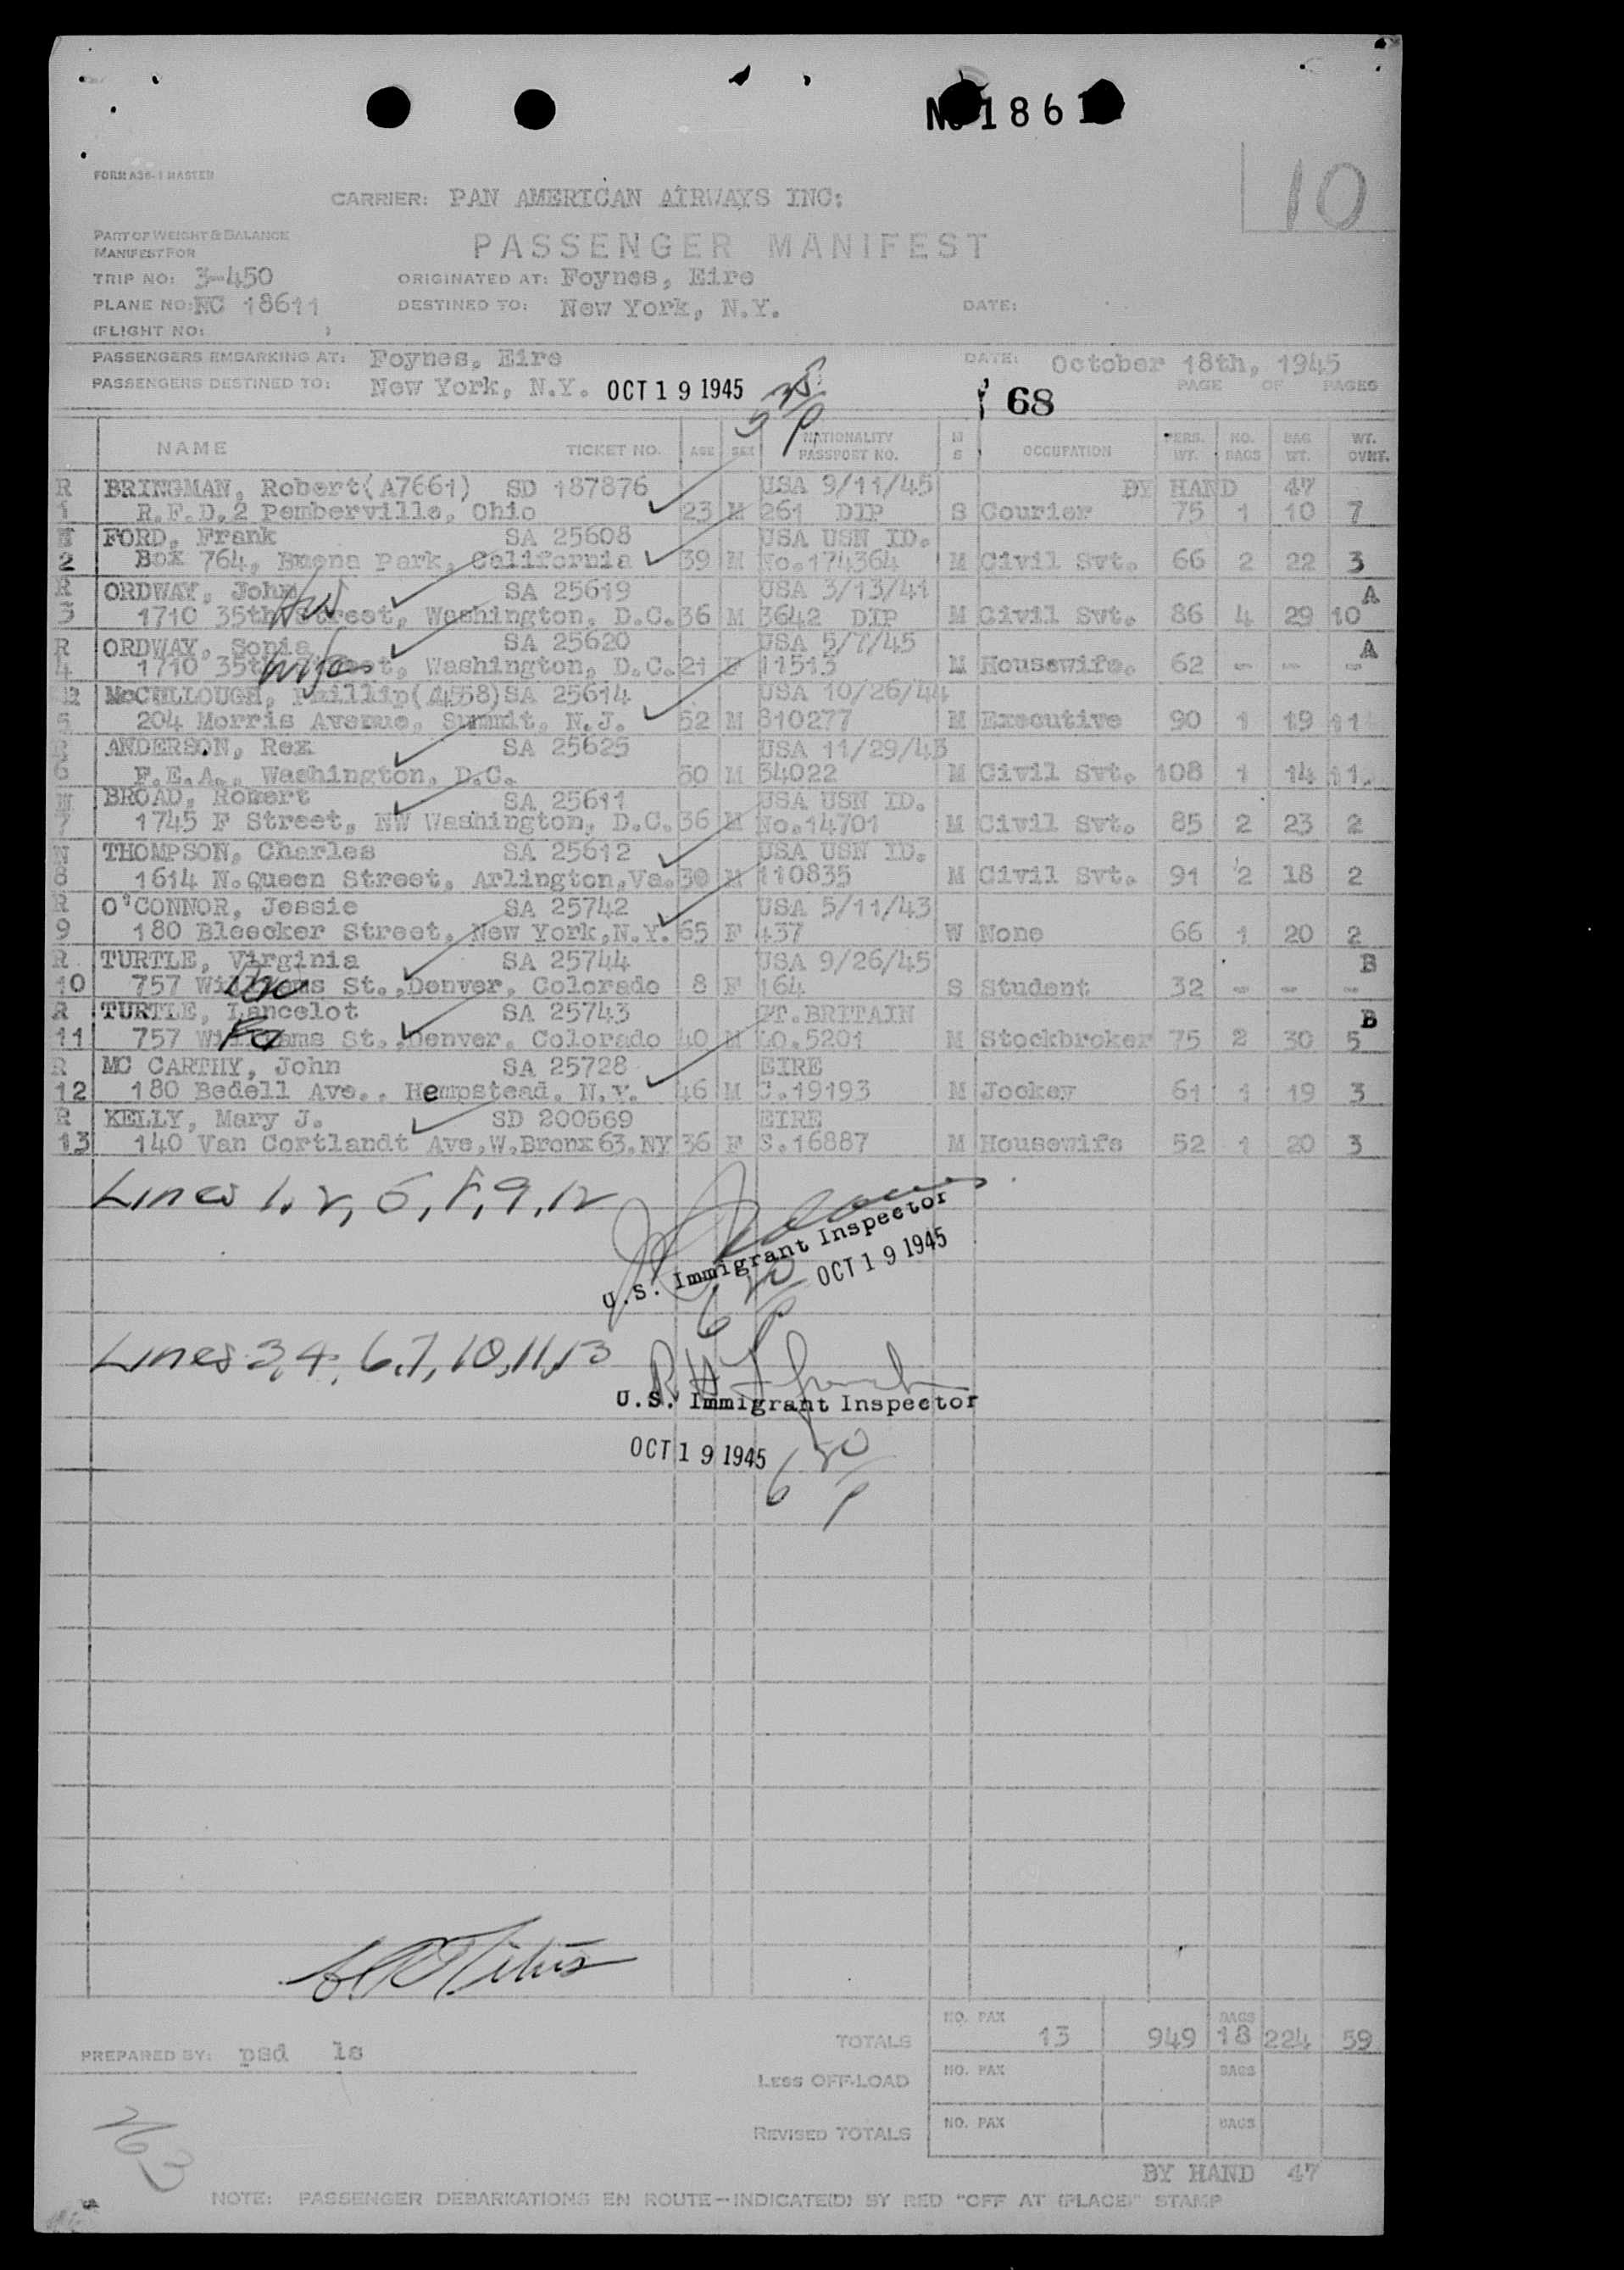 No 1861
10
FORM A36-1 MASTER
CARRIER: PAN AMERICAN AIRWAYS INC:
PART OF WEIGHT & BALANCE
MANIFEST FOR
PASSENGER MANIFEST
TRIP NO: 3-450 ORIGINATED AT: Foynes, Eire
PLANE NO: NC 18611 DESTINED TO: New York, N.Y. DATE:
(FLIGHT NO: )
PASSENGERS EMBARKING AT: Foynes, Eire DATE: October 18th, 1945
PASSENGERS DESTINED TO: New York, N.Y. OCT 19 1945 PAGE OF PAGES
68
NAME TICKET NO. AGE SEX NATIONALITY PASSPORT NO. M S OCCUPATION PERS. WT. NO. BAGS BAG WT. WT. OVHT.
R BRINGMAN, Robert(A7661) SD 187876 USA 9/11/45 BY HAND 47
1 R.F.D.2 Pemberville, Ohio 23 M 261 DIP S Courier 75 1 10 7
FORD, Frank SA 25608 USA USN ID.
2 Box 764, Buena Park, California 39 M No.174364 M Civil Svt. 66 2 22 3
R ORDWAY, John SA 25619 USA 3/13/41 A
3 1710 35th Street, Washington, D.C. 36 M 3642 DIP M Civil Svt. 86 4 29 10
R ORDWAY, Sonia SA 25620 USA 5/7/45 A
4 1710 35th Street, Washington, D.C. 21 F 11513 M Housewife. 62 - - -
wife
R McCULLOUGH, Phillip(A4558) SA 25614 USA 10/26/44
5 204 Morris Avenue, Summit, N.J. 52 M 810277 M Executive 90 1 19 11
R ANDERSON, Rex SA 25625 USA 11/29/43
6 F.E.A., Washington, D.C. 50 M 34022 M Civil Svt. 108 1 14 11.
BROAD, Robert SA 25611 USA USN ID.
7 1745 F Street, NW Washington, D.C. 36 M No.14701 M Civil Svt. 85 2 23 2
N THOMPSON, Charles SA 25612 USA USN ID.
8 1614 N.Queen Street, Arlington,Va. 30 M 110835 M Civil Svt. 91 2 18 2
R O'CONNOR, Jessie SA 25742 USA 5/11/43
9 180 Bleecker Street, New York,N.Y. 65 F 437 W None 66 1 20 2
R TURTLE, Virginia SA 25744 USA 9/26/45 B
10 757 Williams St.,Denver, Colorado 8 F 164 S Student 32 - - -
R TURTLE, Lancelot SA 25743 GT.BRITAIN B
11 757 Williams St.,Denver, Colorado 40 M LO.5201 M Stockbroker 75 2 30 5
Fa
R MC CARTHY, John SA 25728 EIRE
12 180 Bedell Ave., Hempstead, N.Y. 46 M C.19193 M Jockey 61 1 19 3
R KELLY, Mary J. SD 200569 EIRE
13 140 Van Cortlandt Ave,W.Bronx 63,NY 36 F S.16887 M Housewife 52 1 20 3
Lines 1, 2, 5, 8, 9, 12
U.S. Immigrant Inspector
OCT 19 1945
6 20/P
Lines 3, 4, 6, 7, 10, 11, 13
U.S. Immigrant Inspector
OCT 19 1945
6 20/P
TOTALS NO. PAX 13 949 BAGS 18 224 59
PREPARED BY: psd ls
LESS OFF-LOAD NO. PAX BAGS
REVISED TOTALS NO. PAX BAGS
BY HAND 47
NOTE: PASSENGER DEBARKATIONS EN ROUTE—INDICATE(D) BY RED "OFF AT (PLACE)" STAMP